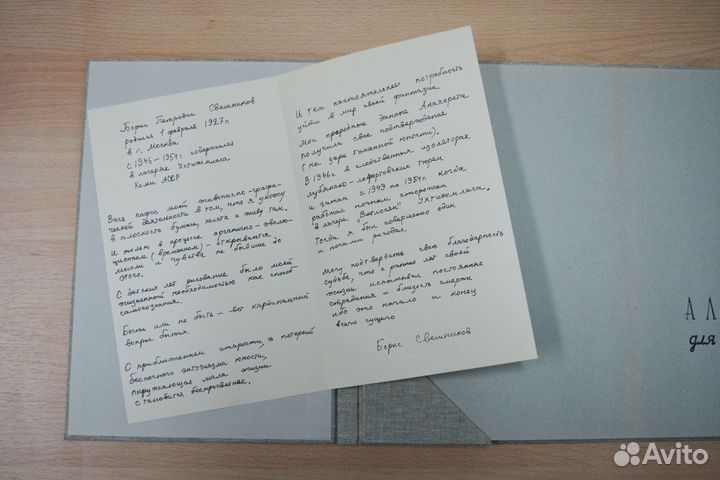 Борис Петрович Свешников
родился 1 февраля 1927 г.
в г. Москва
с 1946–1954г. содержался
в лагерях Ухтижмлага
Коми АССР
Весь пафос моей живописно-графи-
ческой деятельности в том, что я ухожу
в плоскость бумаги, холста и живу там.
И только в процессе органично-эволю-
ционном (временном) – открываются
мысли и чувства не бывшие до
этого.
С детских лет рисование было моей
жизненной необходимостью как способ
самосознания.
Быть или не быть – вот кардинальный
вопрос бытия.
С приближением старости, с потерей
беспечного энтузиазма юности,
окружающая мгла жизни
становится беспросветнее.
И тем настоятельнее потребность
уйти в мир своей фантазии.
Мои природные данные Анахорета
получили своё подтверждение
(на заре туманной юности).
В 1946г. в следственных изоляторах
лубянско-лефортовских тюрем
и затем с 1949 по 1954г. когда
работал ночным сторожем
в лагере "Ветлосян" Ухтижмлага.
Тогда я был совершенно один
и ночами рисовал.
Могу подтвердить свою благодарность
судьбе, что с ранних лет своей
жизни испытывал постоянные
страдания и близость смерти
ибо это начало и конец
всего сущего
Борис Свешников
А Л
для
Avito